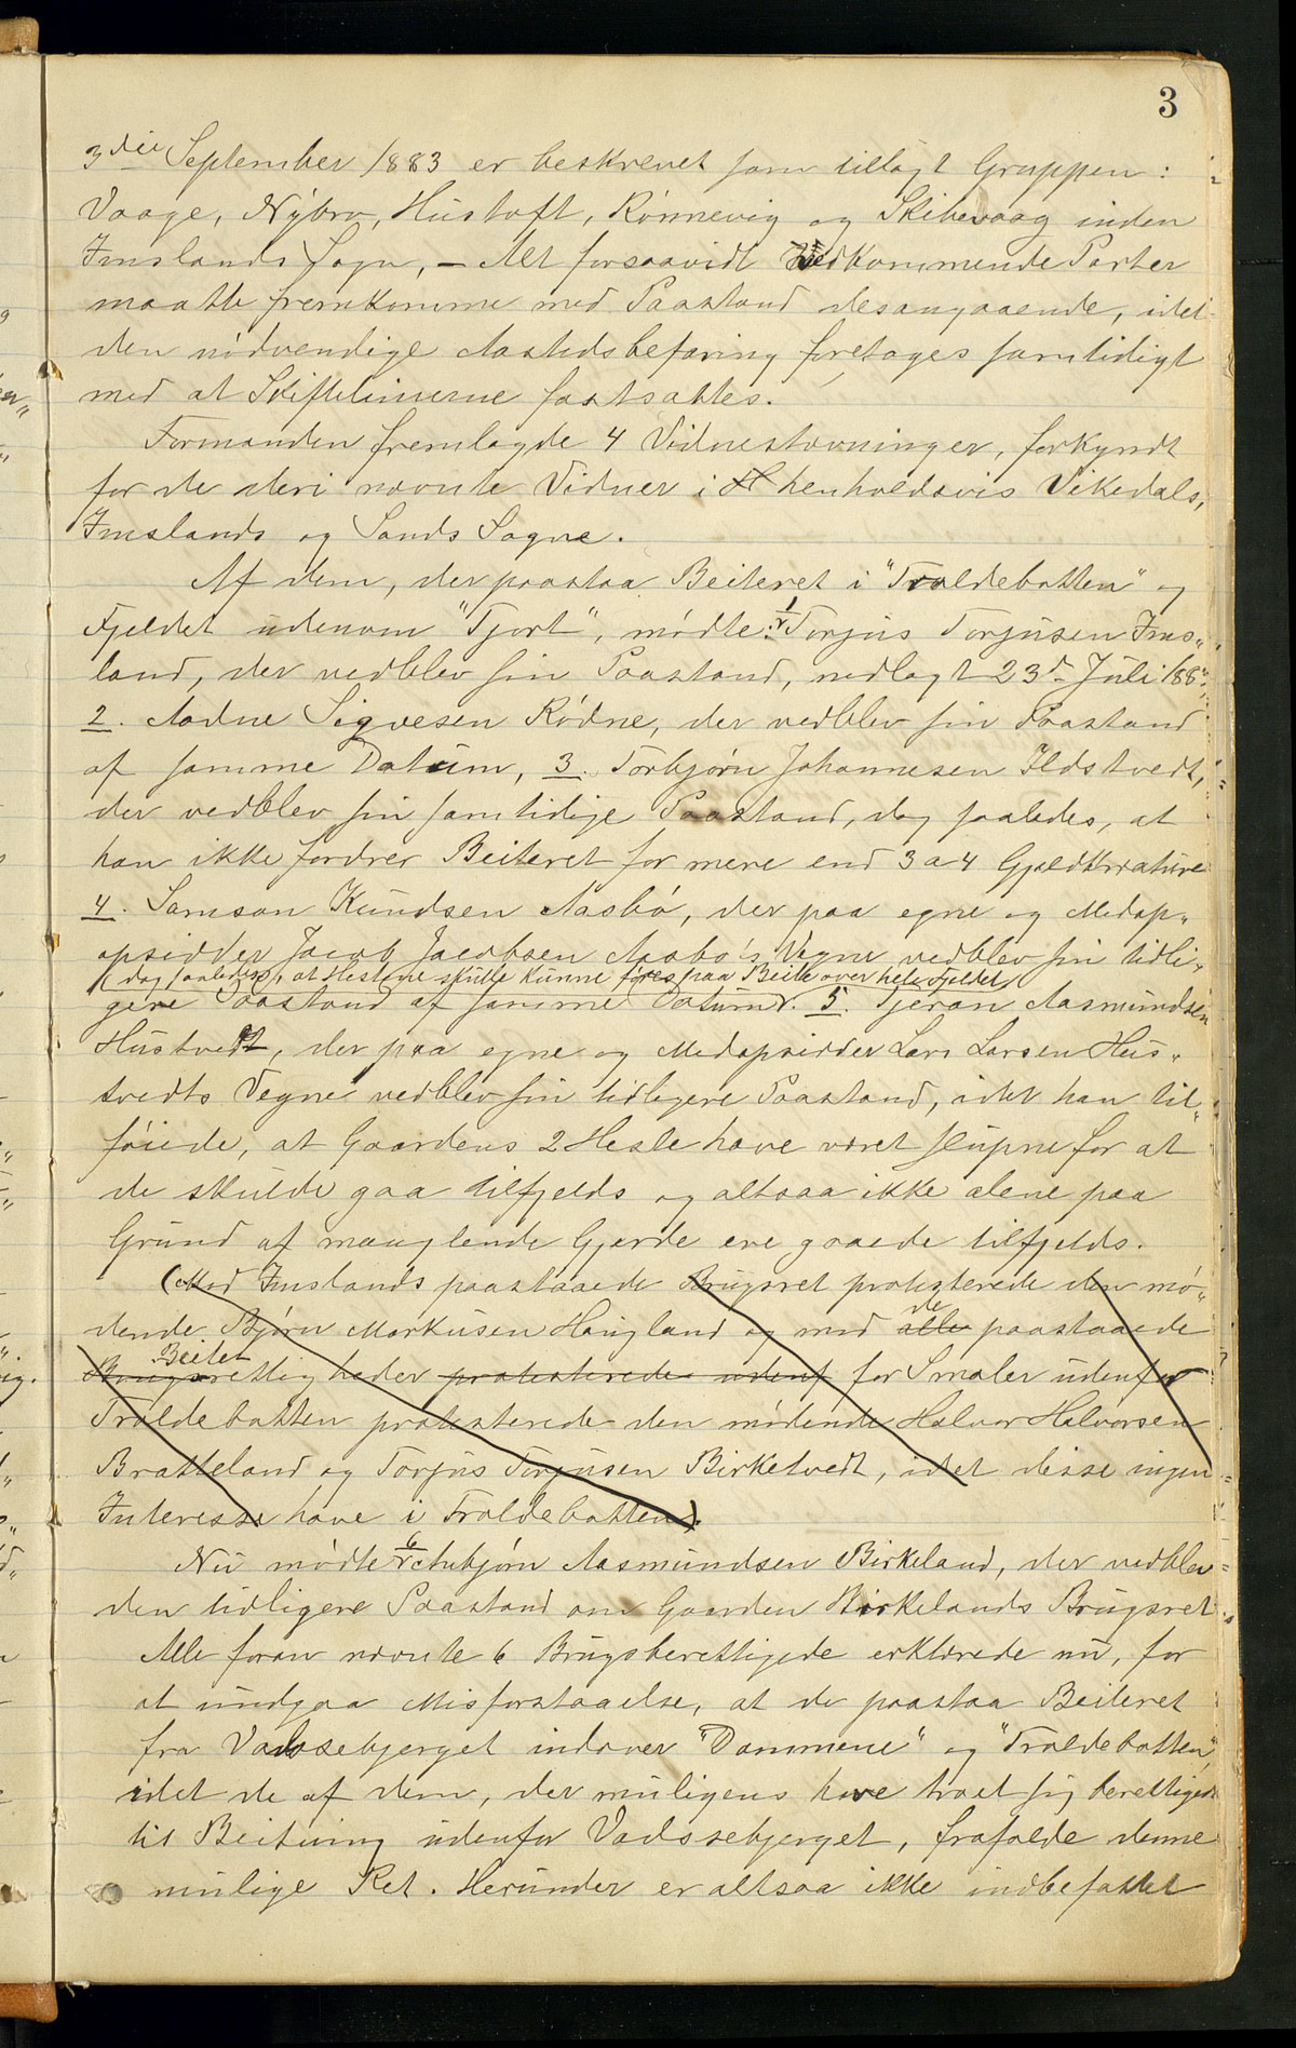 3
3die September 1883 er beskrevet som tillagt Gruppen:
Vaage, Nybro, Hustoft, Rönnevig og Skibevaag inden
Imslands Sogn, – Alt forsaavidt Vedkommende Parter
maatte fremkomme med Paastand desangaaende, idet
den nödvendige Aastedsbefaring foretages samtidigt
med at Skiftelinierne fastsattes.
Formanden fremlagde 4 Vidnestævninger, forkyndt
for de deri nævnte Vidner i henholdsvis Vikedals,
Imslands og Sands Sogne.
Af dem, der paastaa Beiteret i "Troldebotten" og
Fjeldet udenom "Tjort", mödte: 1. Torjus Torjusen Ims„
land, der vedblev sin Paastand, nedlagt 23d Juli 188
2. Aadne Sigvesen Rödne, der vedblev sin Paastand
af samme Datum, 3. Torbjörn Johannesen Ilstvedt,
der vedblev sin samtidige Paastand, dog saaledes, at
han ikke fordrer Beiteret for mere end 3 a 4 Gjeldkreature
4. Samson Knudsen Aasbö, der paa egne og Medop„
opsidder Jacob Jacobsen Aasbö's Vegne vedblev sin tidli„
(dog saaledes, at Hestene skulle kunne föres paa Beite over hele Fjeldet)
gere Paastand af samme Datum. 5. Tjeran Aasmundsen
Hustvedt, der paa egne og Medopsidder Lars Larsen Hus„
tvedts Vegne vedblev sin tidligere Paastand, idet han til„
föiede, at Gaardens 2 Heste have været slupne for at
de skulde gaa tilfjelds og altsaa ikke alene paa
Grund af manglende Gjerde ere gaaede tilfjelds.
(Mod Imslands paastaaede Brugsret protesterede den mö„
de
dende Björn Markusen Haugland og mod alle paastaaede
Beitet
Brugsrettigheder protesterede udenf for Smaler udenfor
Troldebotten protesterede den mödende Halvor Halvorsen
Bratteland og Torjus Torjusen Birketvedt, idet disse ingen
Interesse have i Troldebotten).
Nu mödte 6. Anbjörn Aasmundsen Birkeland, der vedblev
den tidligere Paastand om Gaarden Birkelands Brugsret.
Alle foran nævnte 6 Brugsberettigede erklærede nu, for
at undgaa Misforstaaelse, at de paastaa Beiteret
fra Vadssebjerget indover "Dammene" og "Troldebotten",
idet de af dem, der muligens have troet sig berettiget
til Beitning udenfor Vadssebjerget, frafalde denne
mulige Ret. Herunder er altsaa ikke indbefattet